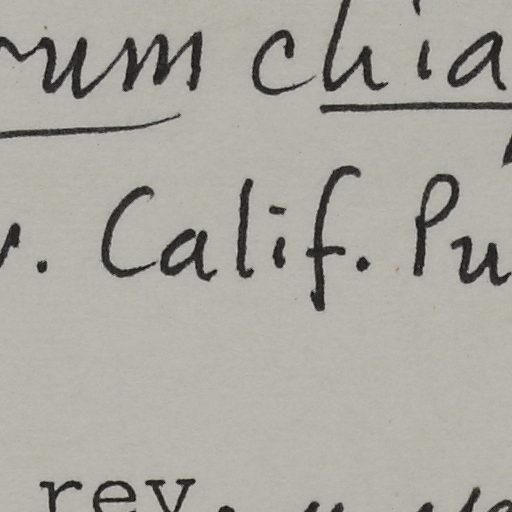 rum chia
v. Calif. Pu
rev.